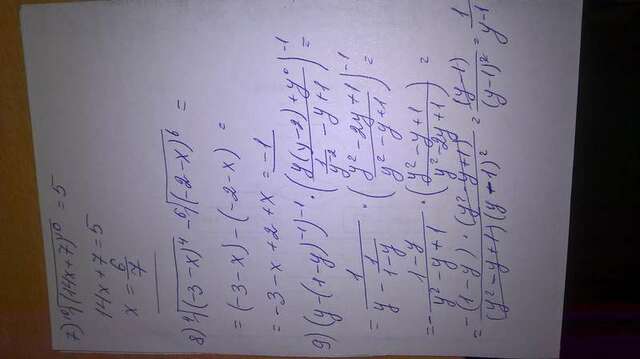 7) ¹⁰√(14x+7)¹⁰ = 5
14x+7=5
x = 6/7
8) ⁴√(-3-x)⁴ - ⁶√(-2-x)⁶ =
= (-3-x)-(-2-x) =
= -3-x+2+x = -1
9) (y-(1-y)⁻¹)⁻¹ · ((y(y-2)+y⁰)/(1/y⁻² - y+1))⁻¹ =
= 1/(y - 1/(1-y)) · ((y²-2y+1)/(y²-y+1))⁻¹ =
= - (1-y)/(y²-y+1) · ((y²-y+1)/(y²-2y+1)) =
= (-(1-y)·(y²-y+1))/((y²-y+1)(y-1)²) = (y-1)/(y-1)² = 1/(y-1)